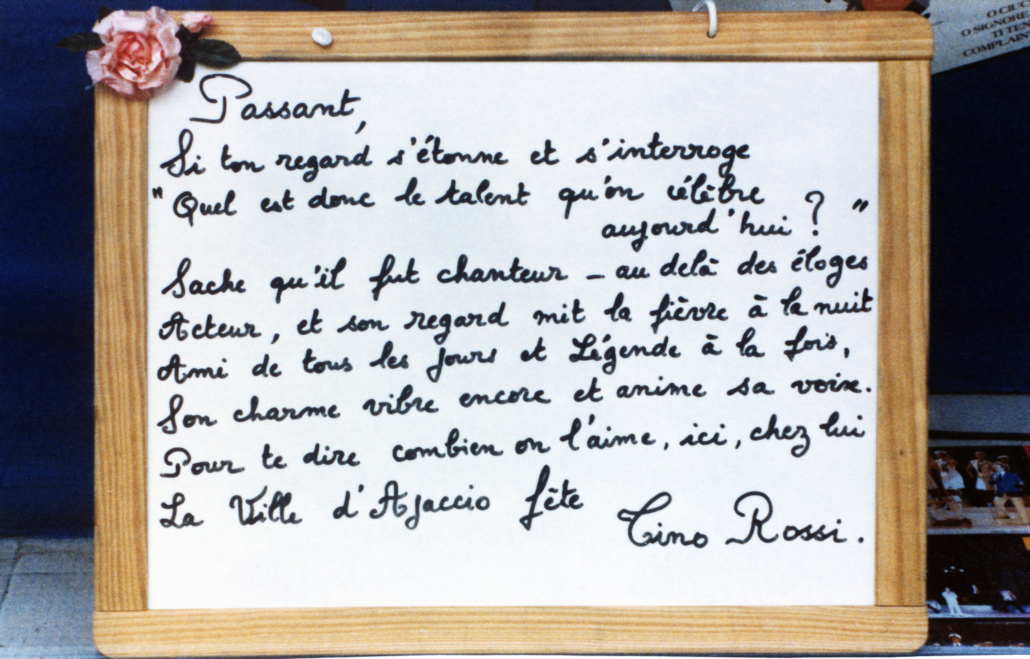 O CIUC
O SIGNORE
TI TEN
COMPLAIN
Passant,
Si ton regard s'étonne et s'interroge
"Quel est donc le talent qu'on célèbre
aujourd'hui ? "
Sache qu'il fut chanteur _ au delà des éloges
Acteur, et son regard mit la fièvre à la nuit
Ami de tous les jours et Légende à la fois,
Son charme vibre encore et anime sa voix.
Pour te dire combien on l'aime, ici, chez lui
La Ville d'Ajaccio fête
Tino Rossi.